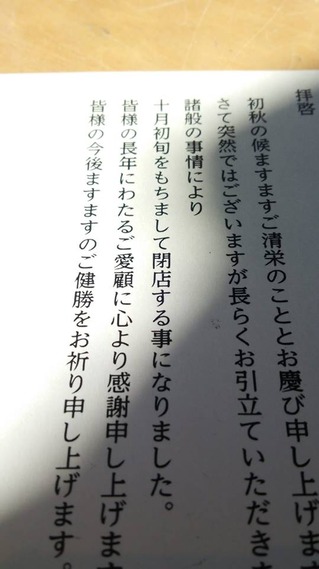 拝啓
初秋の候ますますご清栄のこととお慶び申し上げま
さて突然ではございますが長らくお引立ていただきま
諸般の事情により
十月初旬をもちまして閉店する事になりました。
皆様の長年にわたるご愛顧に心より感謝申し上げます
皆様の今後ますますのご健勝をお祈り申し上げます。